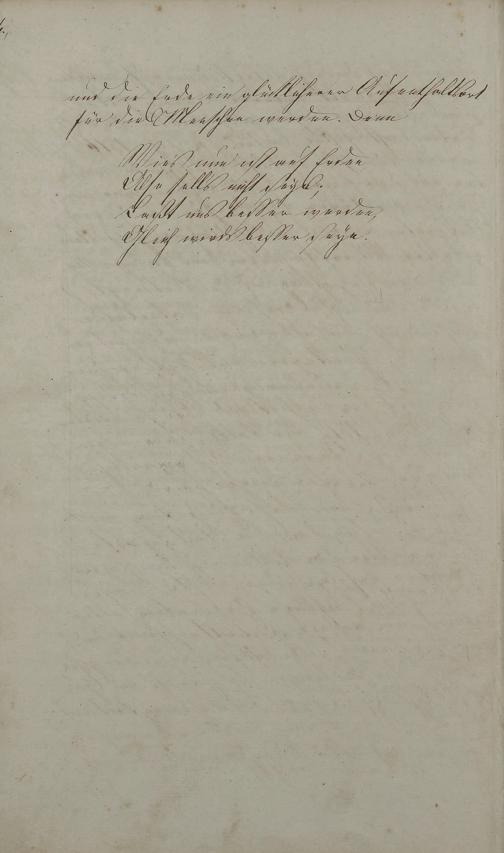 und die Erde ein glücklicherer Aufenthaltsort
für die Menschen werden. Denn
Wies nun ist auf Erden
Also solls nicht seyn;
Laßt uns besser werden,
Gleich wirds besser seyn.